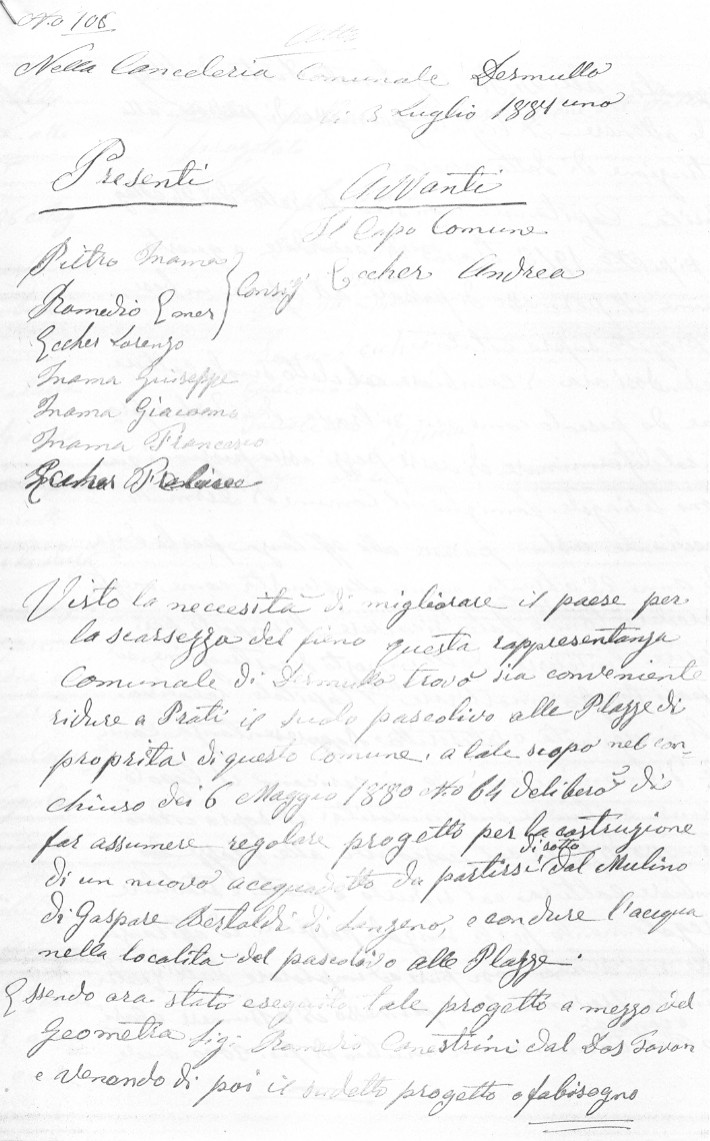 No 106
Atto
Nella Canceleria Comunale Dermullo
li 3 Luglio 1881 uno
Presenti
Avvanti
Il Capo Comune
Eccher Andrea
Pietro Inama
Romedio Emer
Consig
Eccher Lorenzo
Inama Giuseppe
Inama Giacomo
Inama Francesco
Eccher
Visto la neccesità di migliorare il paese per
la scarsezza del fieno questa rappresentanza
Comunale di Dermullo trovò sia conveniente
ridure a Prati il suolo pascolivo alle Plazze di
proprita di questo Comune, a tale scopo nel con-
chiuso dei 6 Maggio 1880 No 64 deliberò di
far assumere regolare progetto per la costruzione
di sotto
di un nuovo acequadotto da partirsi dal Mulino
di Gaspare Bertoldi di Lenzeno, e condure l'acqua
nella località del pascolivo alle Plazze.
Essendo ora stato eseguito tale progetto a mezzo del
Geometra Sigr Romedio Canestrini dal Dos Tavon
e venendo di poi il sudetto progetto e fabisogno